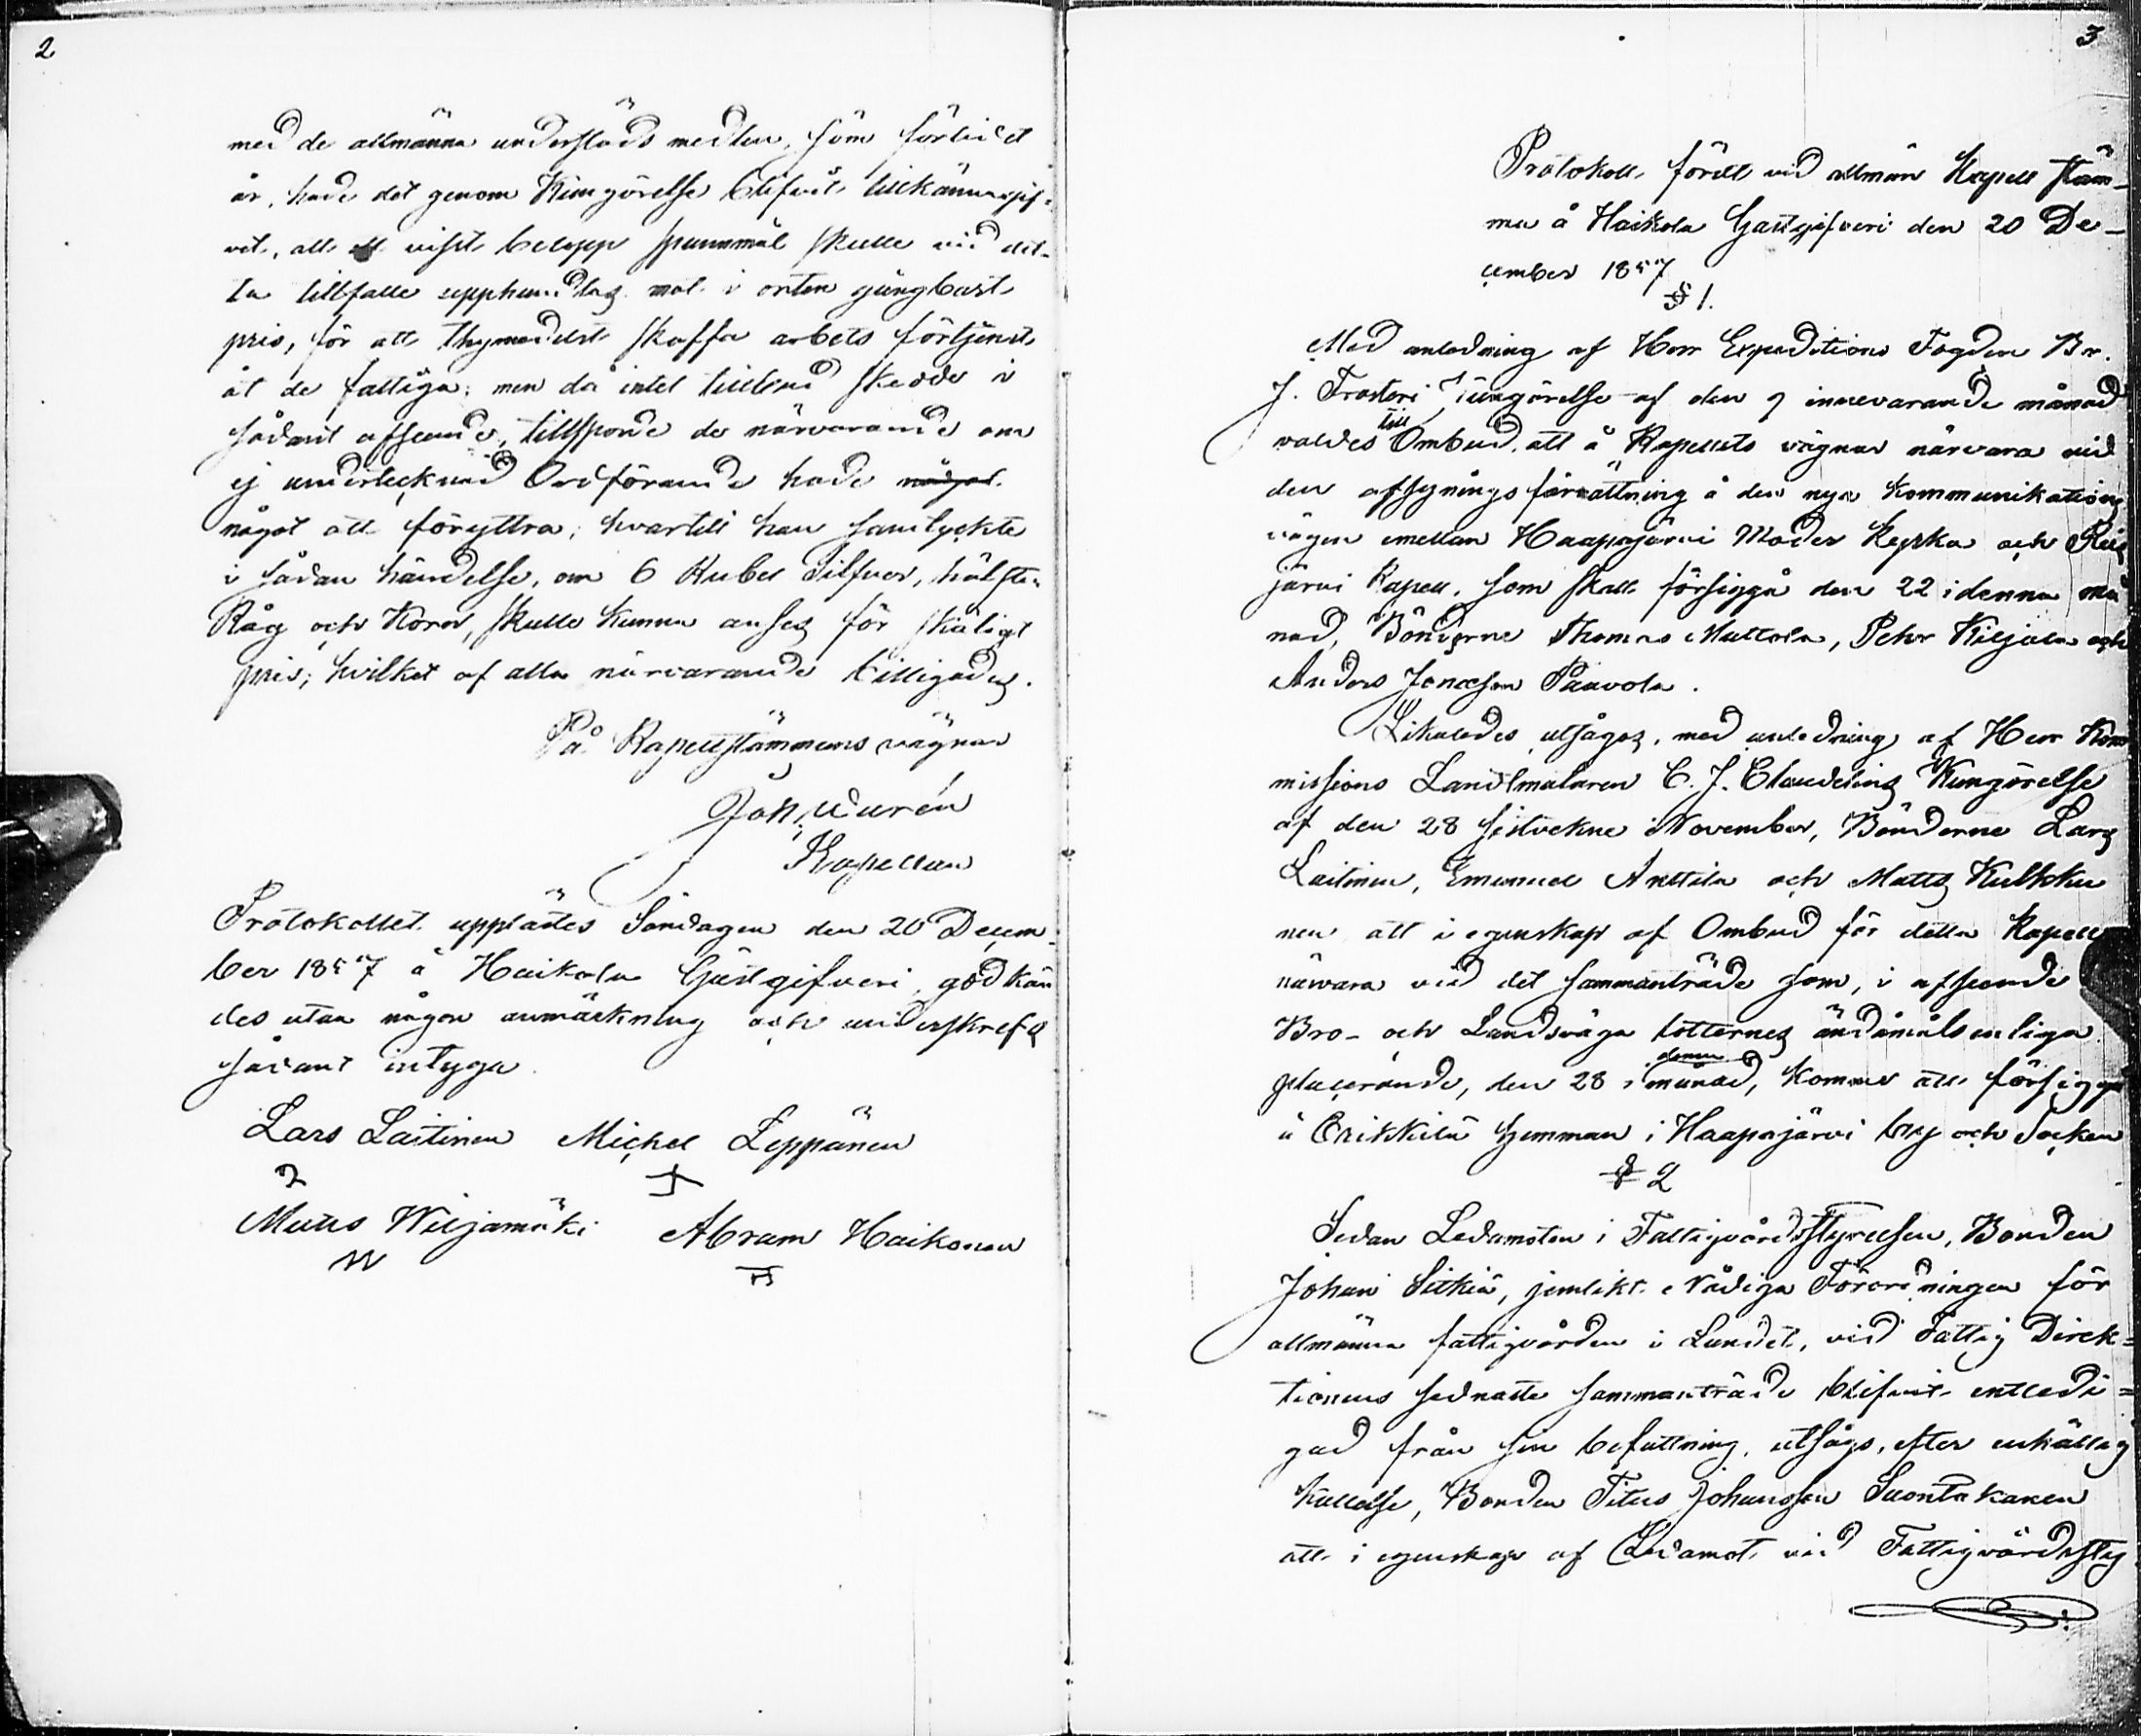 2
med de allmänna understöds medlen, som förlidet
år, hade det genom Kungörelse blifvit tillkännagif-
vit, att ett visst belopp spannmål skulle vid det-
ta tillfälle upphandlas mot i orten gångbart
pris, för att thymedelst skaffa arbets förtjenst
åt de fattiga; men då intet tillbud skedde i
sådant afseende, tillsporde de närvarande om
ej undertecknad Ordförande hade något
något att föryttra; hvartill han samtyckte
i sådan händelse, om 6 Rubel Silfver, hälften
Råg och Korn, skulle kunna anses för skäligt
pris; hvilket af alla närvarande billigades.
På Kapellstämmans vägnar
Joh. Durén
Kapellan
Protokollet upplästes Söndagen den 20 Decem-
ber 1857 å Haikola Gästgifveri, godkän
des utan någon anmärkning och underskrefs
sådant intyga
Lars Laitinen Michel Leppänen
Matts Wiljamäki Abram Haikonen
3
Protokoll, fördt vid allmän Kapell stäm-
ma å Haikola Gästgifveri den 20 De-
cember 1857
§ 1.
Med anledning af Herr Expeditions Fogden Br.
J. Frosteri Kungörelse af den 9 innevarande månad
valdes till Ombud, att å Kapellets vägnar närvara vid
den afsynings förrättning å den nya kommunikations
vägen emellan Haapajärvi Moder kyrka och Reis
järvi Kapell, som skall försiggå den 22 i denna må
nad, Bönderne Thomas Muttola, Pehr Kiljala och
Anders Jonasson Paavola.
Likaledes utsågos, med anledning af Herr Kom
missions Landtmätaren C. J. Claudelins Kungörelse
af den 28 sistvekne November, Bönderne Lars
Laitinen, Emanuel Anttila och Matts Kulkku
nen att i egenskap af Ombud för detta Kapell
närvara vid det sammanträde som, i afseende å
Bro- och Landsväga lotternes ändamålsenliga
placerande, den 28 i denna månad, kommer att försiggå
å Erikkilä hemman i Haapajärvi by och Socken
§ 2
Sedan Ledamoten i Fattigvårdsstyrelsen, Bonden
Johan Sitkiä, jemlikt Nådiga Förordningen för
allmänna fattigvården i Landet, vid Fattig Direk=
tionens sednaste sammanträde blifvit entledi=
gad från sin befattning, utsågs, efter enhällig
kallelse, Bonden Titus Johansson Suontakanen
att i egenskap af Ledamot vid Fattigvårdssty